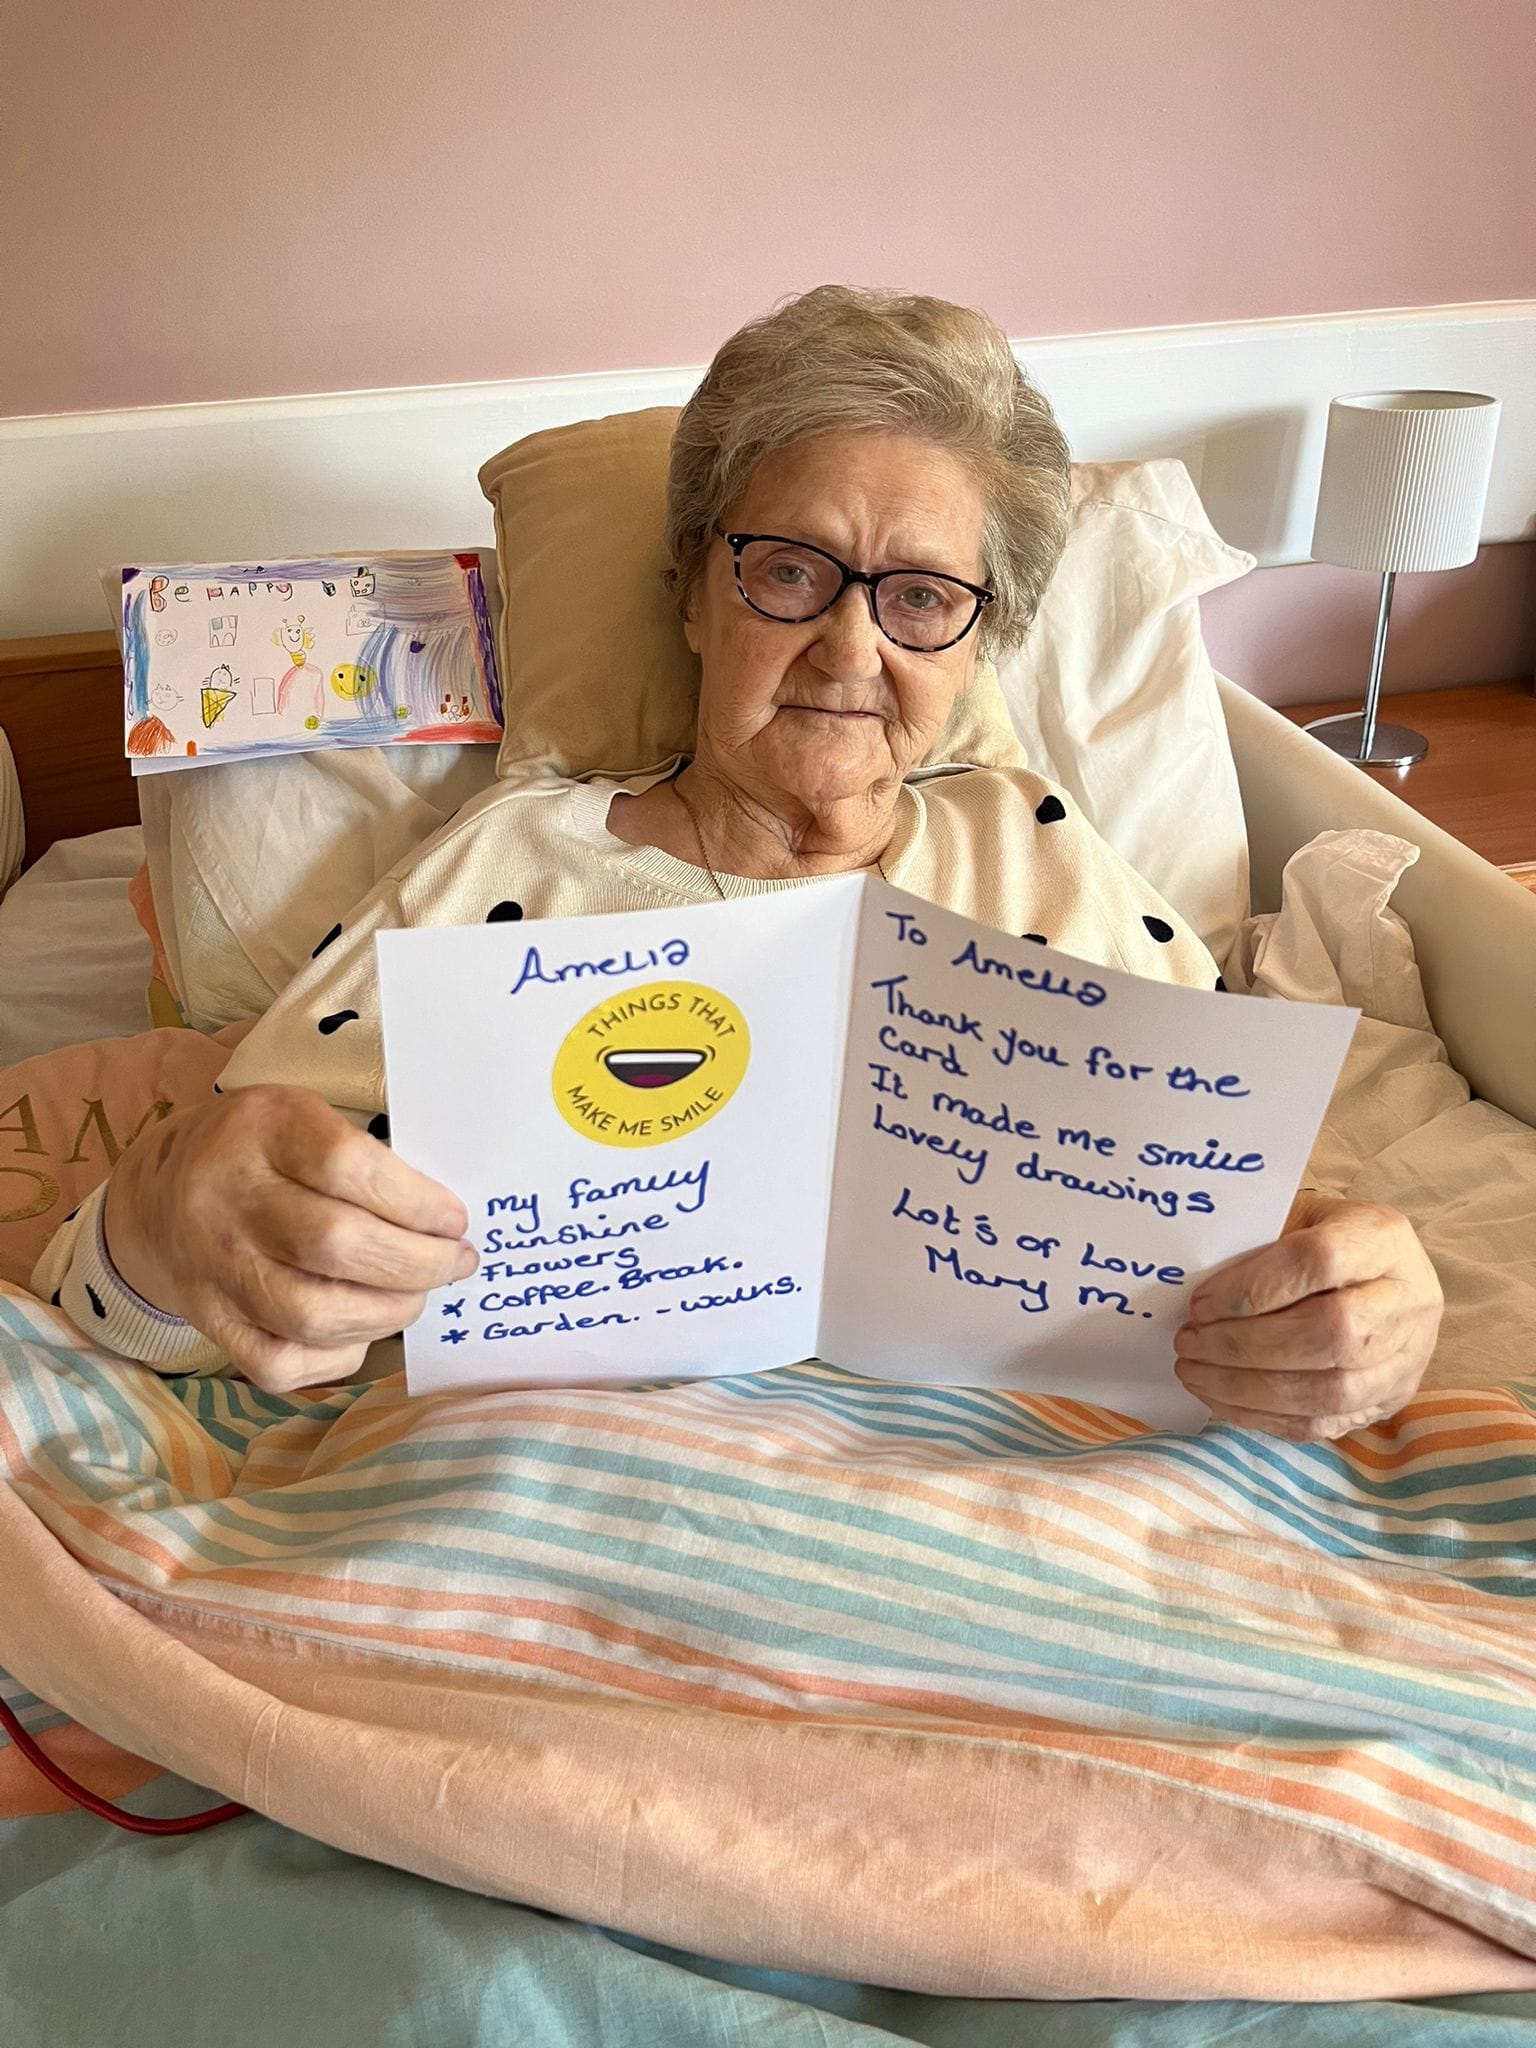 Be HAPPY
Amelia
THINGS THAT
MAKE ME SMILE
my family
Sunshine
* Flowers
* Coffee. Break.
* Garden. - walks.
To Amelia
Thank you for the
Card
It made me smile
Lovely drawings
Lot's of Love
Mary M.